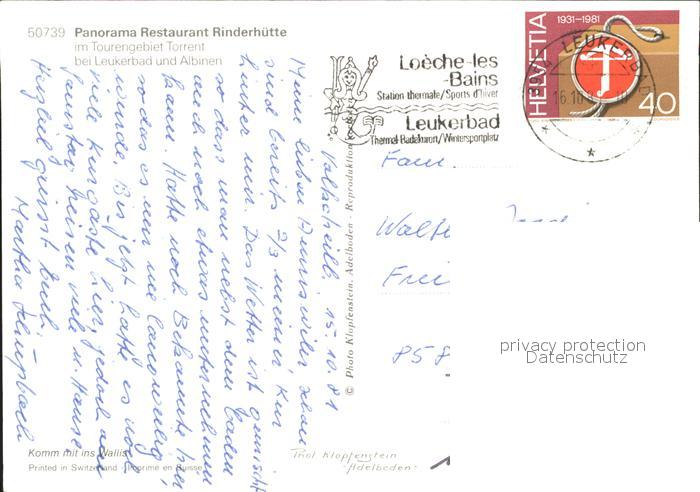 50739 Panorama Restaurant Rinderhütte
im Tourengebiet Torrent
bei Leukerbad und Albinen
Loèche-les
-Bains
Station thermale/Sports d'hiver
Leukerbad
Thermal-Badekurort/Wintersportplatz
HELVETIA
1931-1981
40
LEUKERBAD
16.10
15.10.81
Meine lieben
sind bereits 2/3 meiner Kur
hinter mir. Das Wetter ist
so dass man nebst dem baden
auch noch etwas unternehmen
kann. Hatte noch Bekannte hier
so dass es mir nie langweilig
wurde. Bis jetzt hatte es noch
viele Kurgäste hier, jedoch am
Samstag reisen viele n. Hause.
Herzlich grüsst Euch
Martha
© Photo Klopfenstein, Adelboden - Reproduktion
Fam
Walte
Frei
858
privacy protection
Datenschutz
Komm mit ins Wallis
Printed in Switzerland - Imprimé en Suisse
Klopfenstein
Adelboden